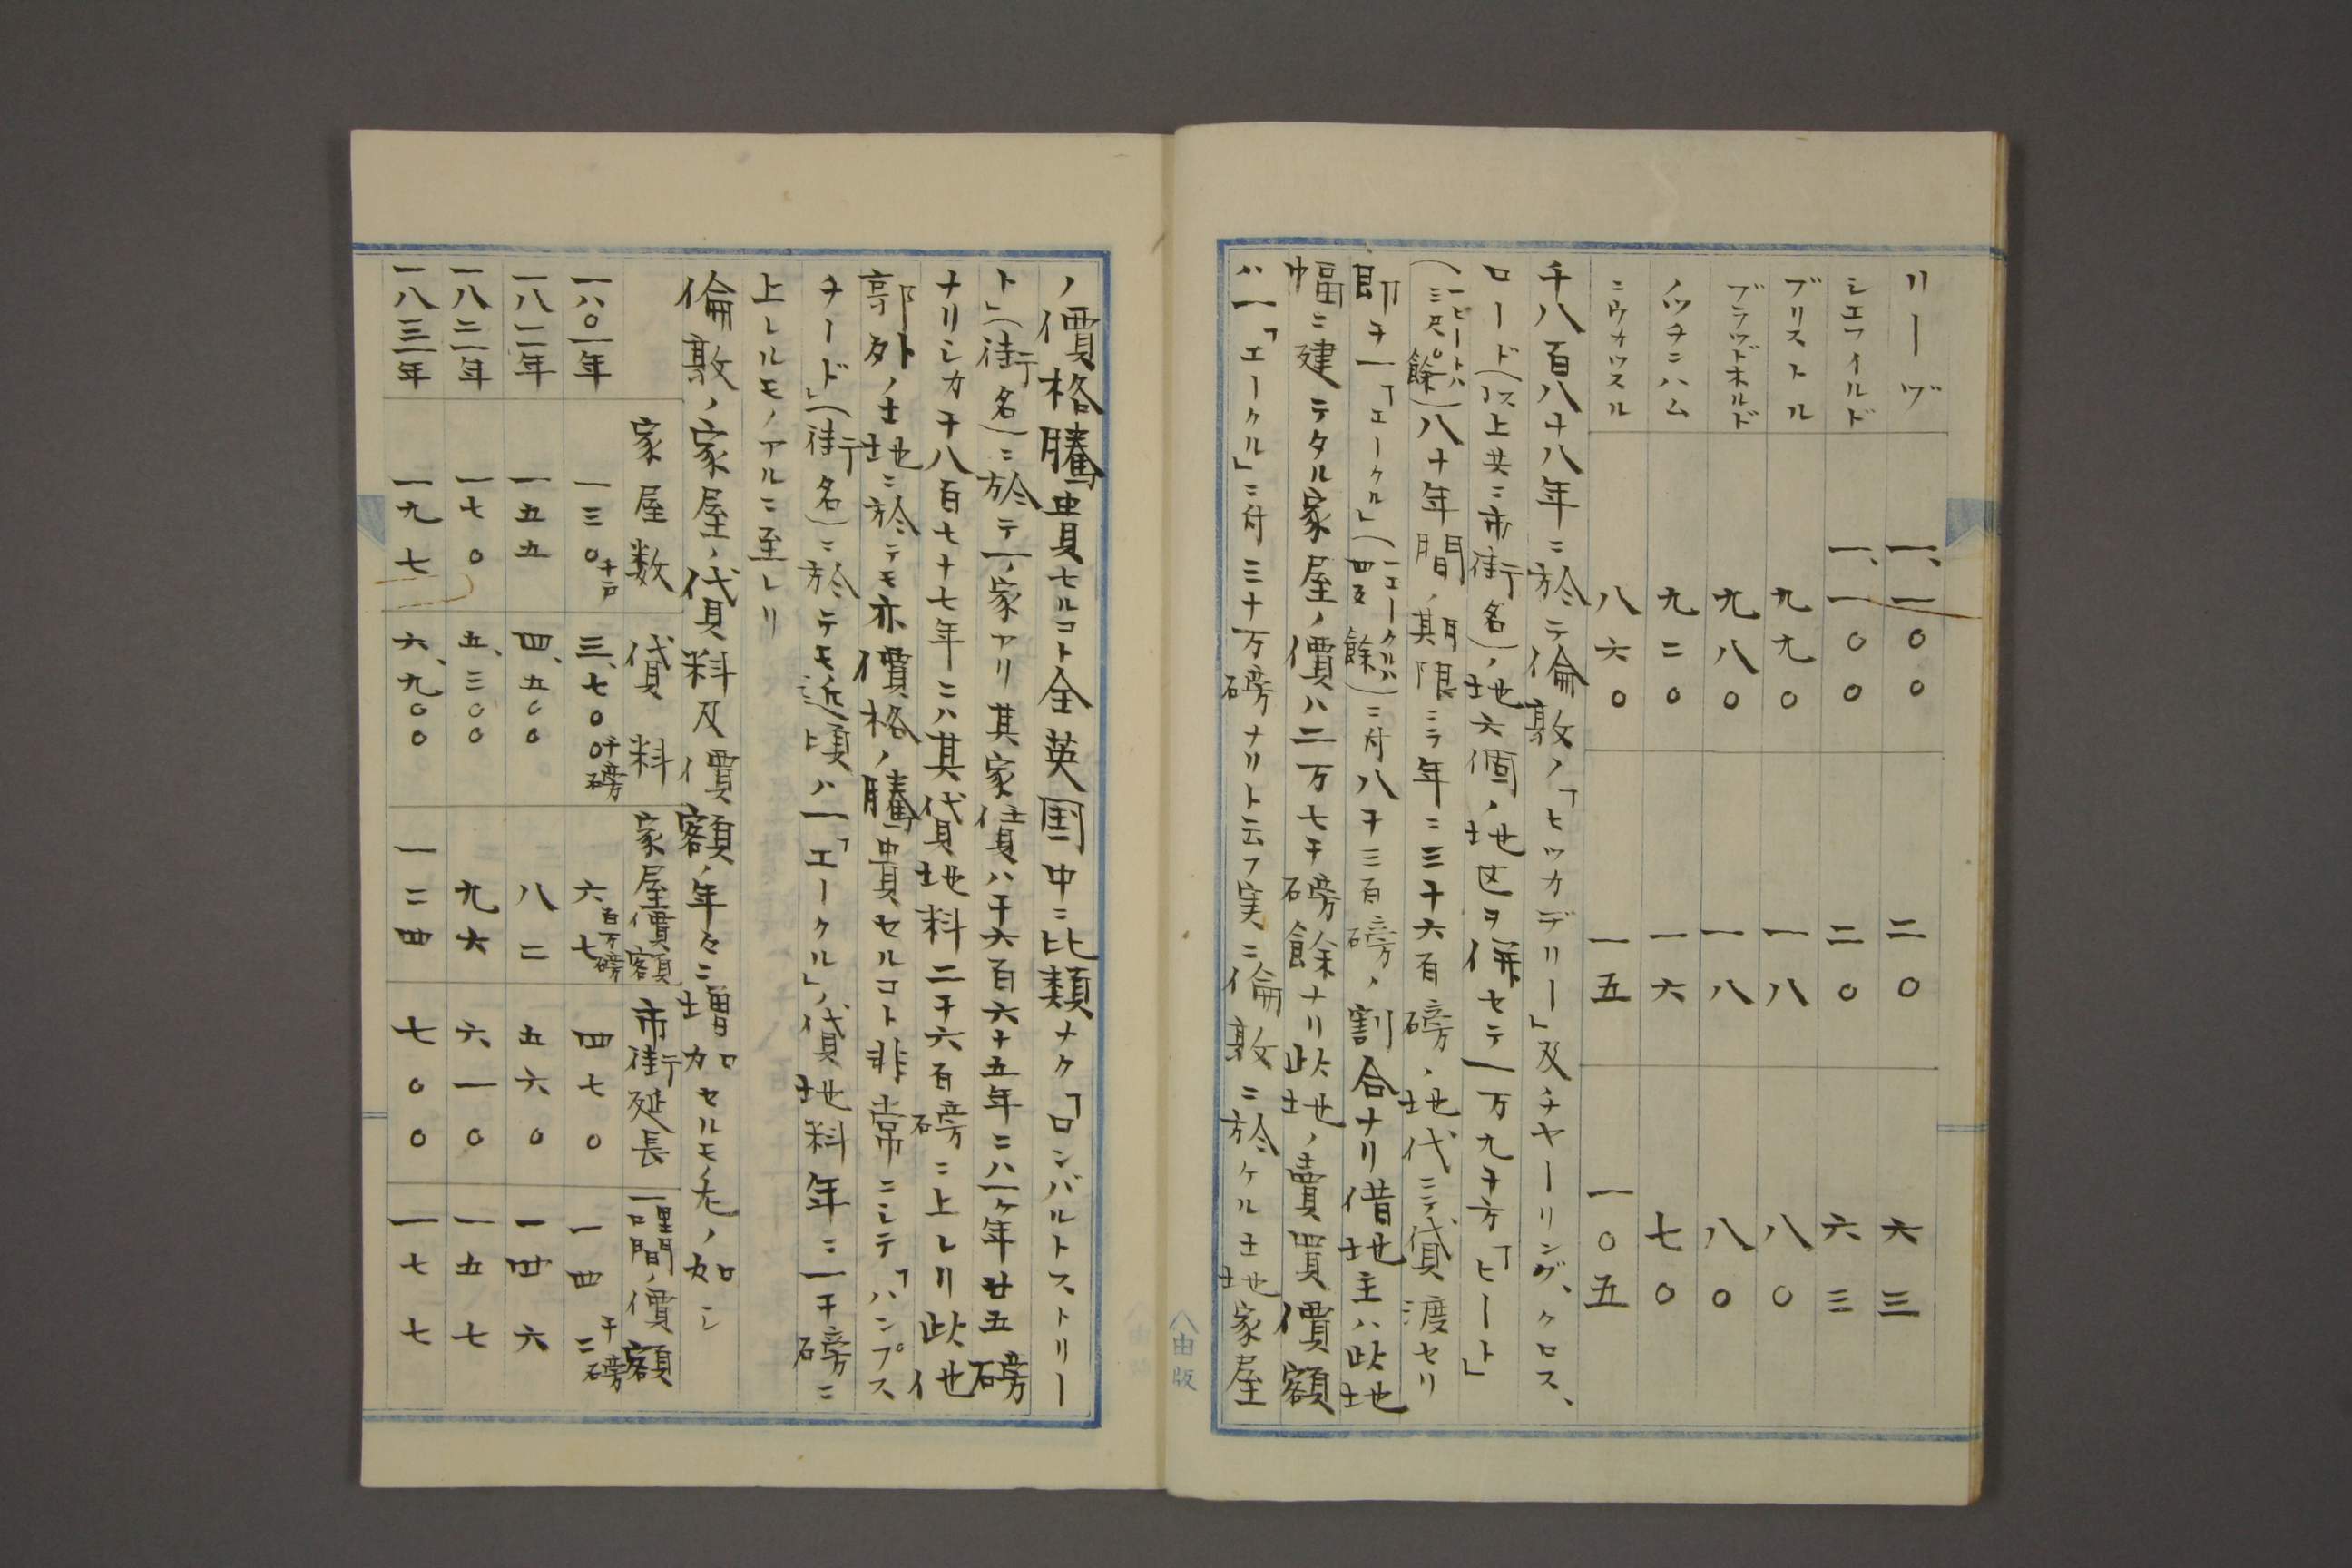 リーヅ 一、一〇〇 二〇 六三
シエフイルド 一、一〇〇 二〇 六三
ブリストル 九九〇 一八 八〇
ブラッドホルド 九八〇 一八 八〇
ノッチンハム 九二〇 一六 七〇
ニウカッスル 八六〇 一五 一〇五
千八百八十八年ニ於テ倫敦ノ「ヒツカデリー」及チヤーリング、クロス、
ロード(以上共ニ市街名)ノ地六個ノ地区ヲ併セテ一万九千方「ヒート」
(一ヒートハ三尺。餘)八十年間ノ期限ニテ年ニ三千六百磅ノ地代ニテ貸渡セリ
即チ一「エークル」(一エークルハ四反餘)ニ付八千三百磅ノ割合ナリ借地主ハ此地
幅ニ建テタル家屋ノ價ハ二万七千磅餘ナリ此地ノ賣買價額
ハ一「エークル」ニ付三十万磅ナリト云フ実ニ倫敦ニ於ケル土地家屋
八由版
ノ價格騰貴セルコト全英国中ニ比類ナク「ロンバルトストリー
ト」(街名)ニ於テ一ノ家アリ其家債ハ千六百六十五年ニハ一ヶ年廿五磅
ナリシカ千八百七十七年ニハ其貸地料二千六百磅ニ上レリ此他
郭外ノ土地ニ於テモ亦價格ノ騰貴セルコト非常ニシテ「ハンプス
チード」(街名)ニ於テモ近頃ハ一「エークル」ノ貸地料年ニ一千磅ニ
上レルモノアルニ至レリ
倫敦ノ家屋ノ貸料及價額ノ年々ニ増加セルモ左ノ如シ
家屋数 貸料 家屋價額 市街延長 一哩間ノ價額
一八〇一年 一三〇千戸 三、七〇〇千磅 六七百万磅 四七〇 一四二千磅
一八一一年 一五五 四、五〇〇 八二 五六〇 一四六
一八二一年 一七〇 五、三〇〇 九六 六一〇 一五七
一八三一年 一九七 六、九〇〇 一二四 七〇〇 一七七